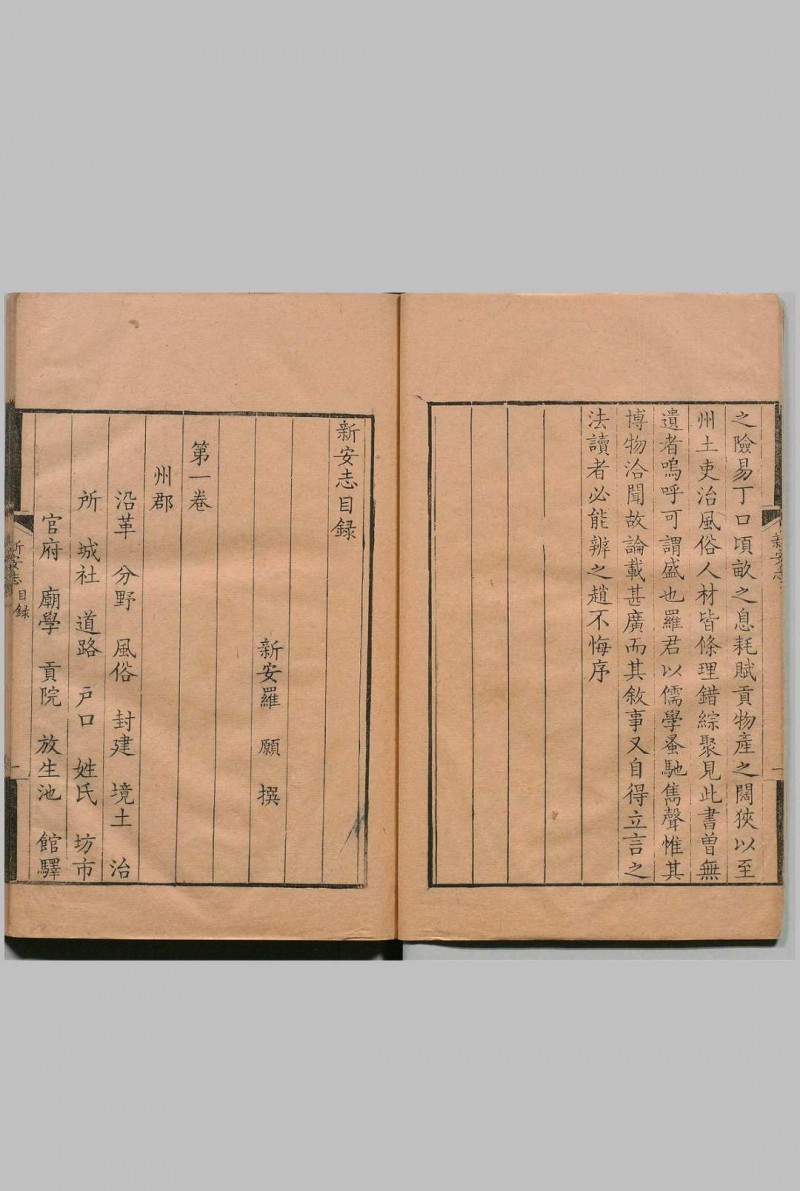 之險易丁口頃畝之息耗賦貢物產之闊狹以至
州土吏治風俗人材皆條理錯綜聚見此書曽無
遺者嗚呼可謂盛也羅君以儒學蚤馳雋聲惟其
博物洽聞故論載甚廣而其敘事又自得立言之
法讀者必能辨之趙不悔序
新安志
一
新安志目録
新安羅願撰
第一卷
州郡
沿革 分野 風俗 封建 境土 治
所 城社 道路 戸口 姓氏 坊市
官府 廟學 貢院 放生池 館驛
新安志目録
一